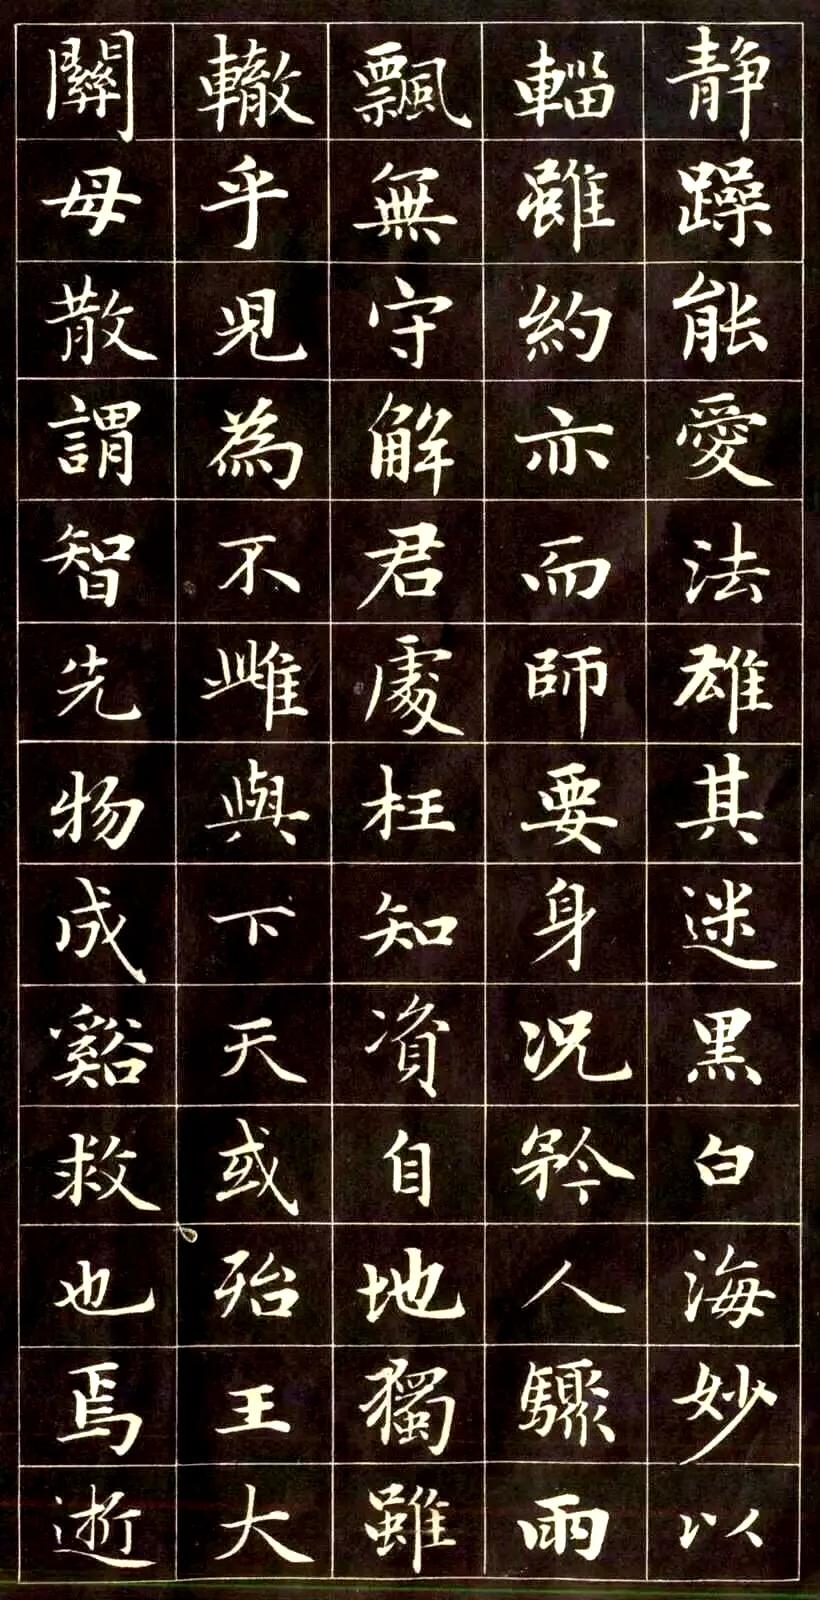 静躁能愛法雄其迷黒白海妙以
輜雖約亦而師要身况矜人驟雨
飄無守解君處枉知資自地獨雖
轍乎児為不雌與下天或殆王大
關毋散謂智先物成谿救也焉逝